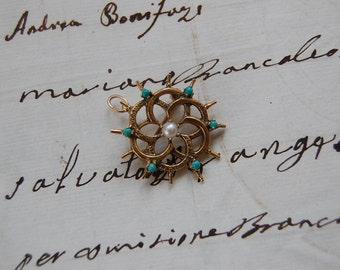 Andrea Bonifazi
mariano Brancaleo
salvator ange
per comisione Branca